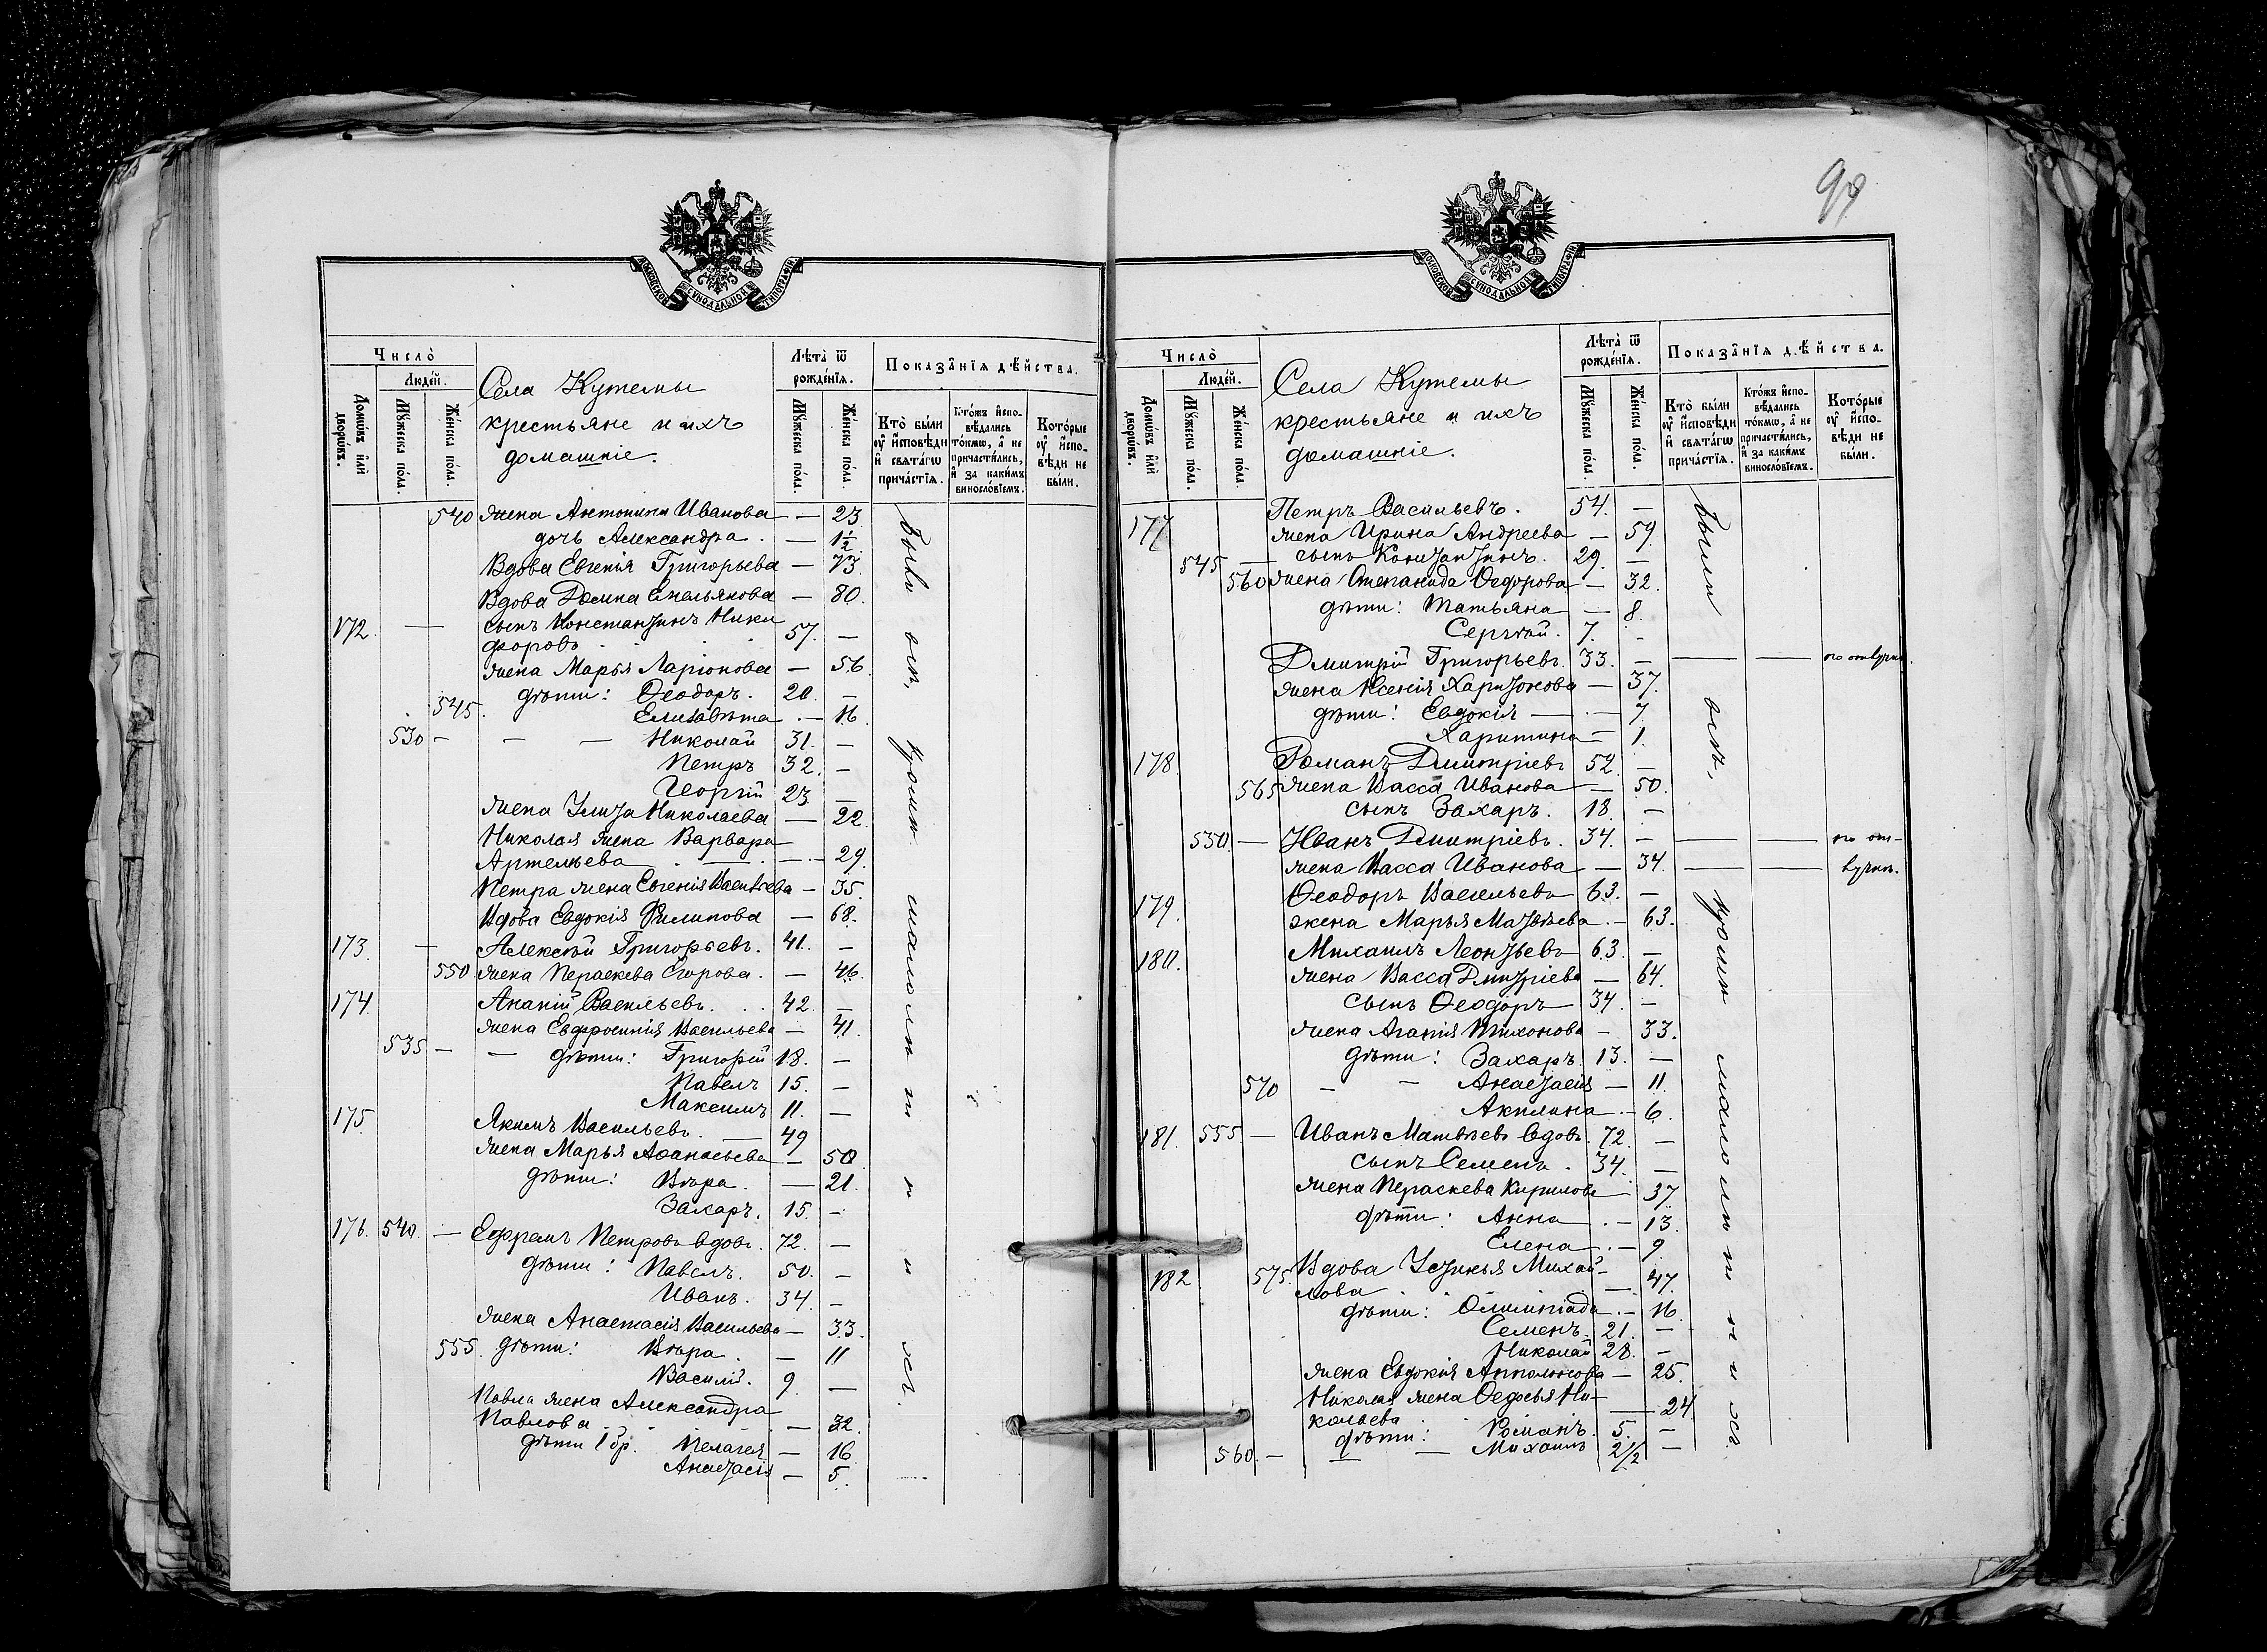 99
МОСКОВСКОЙ СѴНОДАЛЬНОЙ ТИПОГРАФІИ
Число̀
Люде́й.
Домѡ́въ и҆лѝ дворѡ́въ.
Мꙋ́жеска по́ла.
Же́нска по́ла.
Села Кутемы
крестьяне и ихъ
домашніе.
Лѣ́та ѿ рожде́нїѧ.
Мꙋ́жеска по́ла.
Же́нска по́ла.
Показа̑нїѧ дѣ́йства.
Кто̀ бы́ли ᲂу҆ и҆сповѣ́ди и҆ свѧта́гѡ прича́стїѧ.
Кто́жъ и҆сповѣ́дались то́кмѡ, а҆ не причасти́лись, и҆ за каки́мъ виносло́вїемъ.
Кото́рые ᲂу҆ и҆сповѣ́ди не бы́ли.
540 жена Антонина Иванова — 23.
дочь Александра. — 1½
Вдова Евгенія Григорьева — 73.
Вдова Домна Емельянова — 80.
172. — сынъ Константинъ Ники
форовъ 57. —
жена Марья Ларіонова — 56
дѣти: Ѳеодоръ. 20. —
545. Елизавѣта — 16.
530 — — — Николай 31. —
Петръ 32. —
Георгій 23 —
жена Улита Николаева — 22.
Николая жена Варвара
Артемьева — 29.
Петра жена Евгенія Васильева — 35.
Вдова Евдокія Филипова — 68.
173. — Алексѣй Григорьевъ. 41. —
550 жена Пераскева Егорова. — 46.
174. Ананій Васильевъ. 42. —
жена Евфросинія Васильева — 41.
535 — — дѣти: Григорій 18. —
Павелъ 15. —
Максимъ 11. —
175. Якимъ Васильевъ. 49
жена Марья Аѳанасьева — 50
дѣти: Вѣра. — 21.
Захаръ. 15. —
176. 540. — Ефремъ Петровъ вдовъ. 72. —
дѣти: Павелъ. 50. —
Иванъ. 34. —
жена Анастасія Васильева — 33.
555. дѣти: Вѣра. — 11
Василій. 9. —
Павла жена Александра
Павлова — 32.
дѣти 1 бр. Пелагея — 16
Анастасія — 5.
были всѣ, кромѣ малолѣтнихъ.
МОСКОВСКОЙ СѴНОДАЛЬНОЙ ТИПОГРАФІИ
Число̀
Люде́й.
Домѡ́въ и҆лѝ дворѡ́въ.
Мꙋ́жеска по́ла.
Же́нска по́ла.
Села Кутемы
крестьяне и ихъ
домашніе.
Лѣ́та ѿ рожде́нїѧ.
Мꙋ́жеска по́ла.
Же́нска по́ла.
Показа̑нїѧ дѣ́йства.
Кто̀ бы́ли ᲂу҆ и҆сповѣ́ди и҆ свѧта́гѡ прича́стїѧ.
Кто́жъ и҆сповѣ́дались то́кмѡ, а҆ не причасти́лись, и҆ за каки́мъ виносло́вїемъ.
Кото́рые ᲂу҆ и҆сповѣ́ди не бы́ли.
177. Петръ Васильевъ. 54. —
жена Ирина Андреева — 59.
545 — сынъ Константинъ. 29. —
560 жена Степанида Ѳедорова — 32.
дѣти: Татьяна — 8.
Сергѣй. 7. —
Дмитрій Григорьевъ. 33. — — — по отлучкѣ.
жена Ксенія Харитонова — 37.
дѣти: Евдокія — 7.
Харитина — 1.
178. Романъ Дмитріевъ 52. —
565 жена Васса Иванова — 50.
сынъ Захаръ. 18. —
550. — Иванъ Дмитріевъ. 34. — — — по от-
жена Васса Иванова — 34. — — лучкѣ.
179. Ѳеодоръ Васильевъ 63. —
жена Марья Матвѣева. — 63.
180. Михаилъ Леонтьевъ 63. —
жена Васса Дмитріева — 64.
сынъ Ѳеодоръ 34. —
жена Агапія Тихонова — 33.
дѣти: Захаръ. 13. —
570 — — Анастасія — 11.
Акилина — 6.
181. 555. — Иванъ Матвѣевъ вдовъ. 72. —
сынъ Семенъ. 34. —
жена Пераскева Кирилова — 37
дѣти: Анна — 13.
Елена — 9
182 575. Вдова Устинья Михай-
лова — 47.
дѣти: Олимпіада — 16.
Семенъ 21. —
Николай 28. —
жена Евдокія Апполонова — 25.
Николая жена Ѳедосья Ни-
колаева — 24
дѣти: Романъ. 5. —
560. — — — Михаилъ 2½ —
были всѣ, кромѣ малолѣтнихъ.